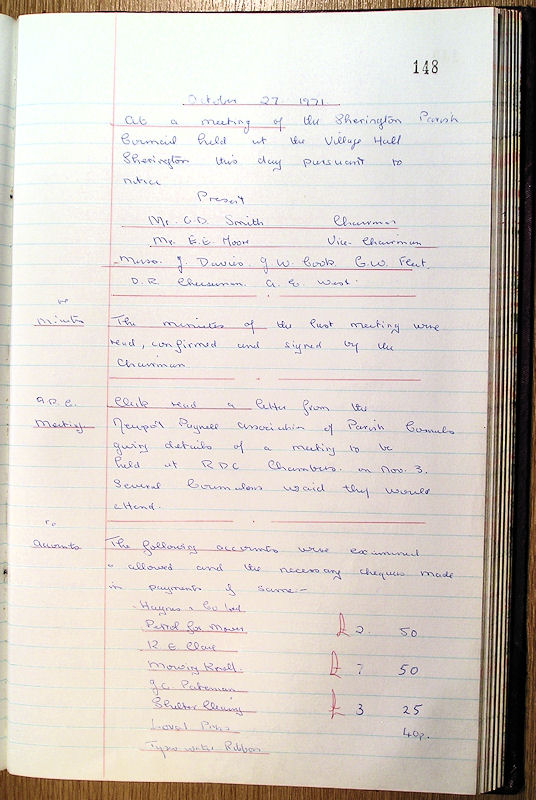 148
October 27 1971
At a meeting of the Sherington Parish
Council held at the Village Hall
Sherington this day pursuant to
notice
Present
Mr. C.D. Smith Chairman
Mr. E.E. Moore Vice Chairman
Messrs. J. Davies. J.W. Cook C.W. Flent.
D.R. Cheeseman. A. E. West.
re
Minutes
The minutes of the last meeting were
read, confirmed and signed by the
Chairman
A.P.C.
Meeting
Clerk read a letter from the
Newport Pagnell Association of Parish Councils
giving details of a meeting to be
held at RDC Chambers. on Nov. 3.
Several Councillors said they would
attend.
re
Accounts
The following accounts were examined
& allowed and the necessary cheques made
in payments of same:-
Haynes & Co Ltd
Petrol for Mower £ 2. 50
R E
Mowing Knoll. £ 7 50
J.C. Pateman
Shelter Cleaning £ 3 25
40p.
Typewriter Ribbon